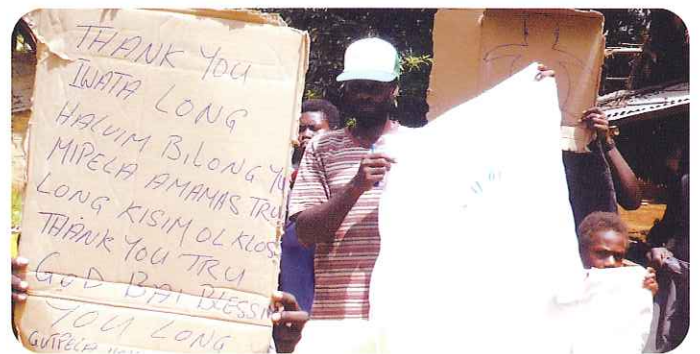 THANK YOU
IWATA LONG
HALVIM BILONG YU
MIPELA AMAMAS TRU
LONG KISIM OL KLOS
THANK YOU TRU
GOD BAI BLESSIM
YOU LONG
GUTPELA